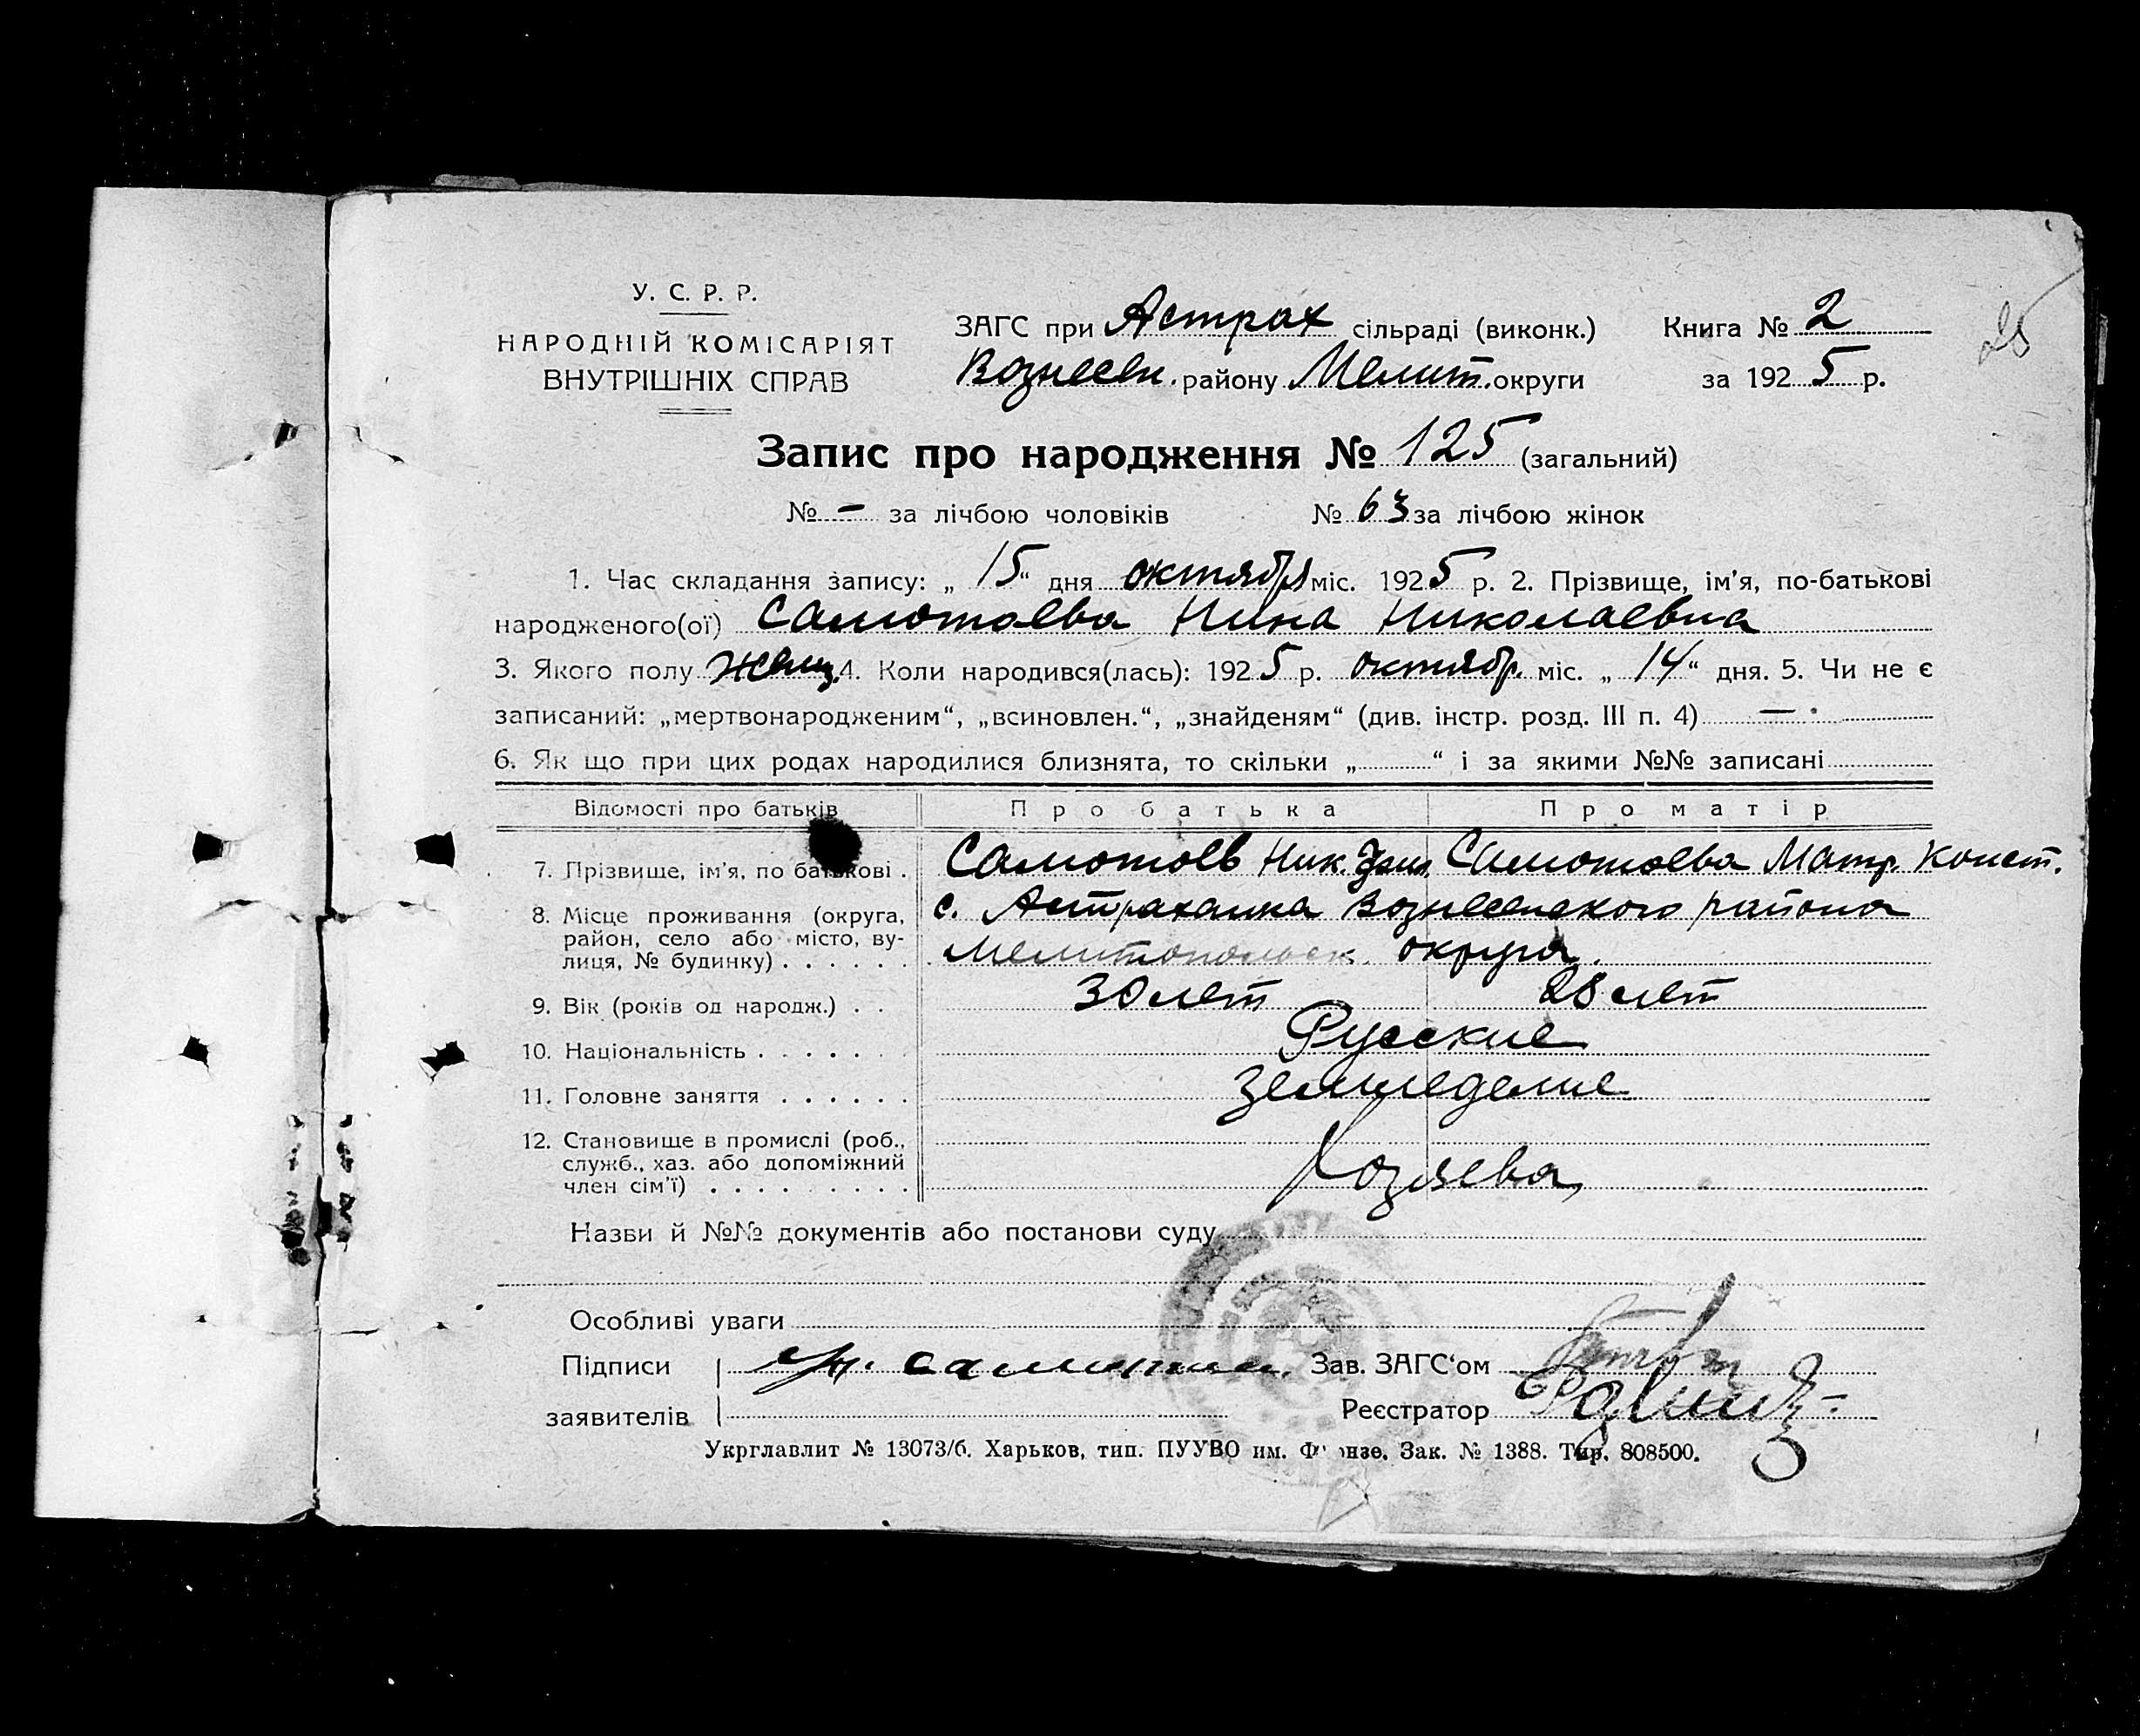 25
У. С. Р. Р.
НАРОДНІЙ КОМІСАРІЯТ
ВНУТРІШНІХ СПРАВ
ЗАГС при Астрах сільраді (виконк.) Книга № 2
Вознесен. району Мелит. округи за 1925 р.
Запис про народження № 125 (загальний)
№ – за лічбою чоловіків № 63 за лічбою жінок
1. Час складання запису: „ 15 “ дня октября міс. 1925 р. 2. Прізвище, ім’я, по-батькові
народженого(ої) Самотоева Нина Николаевна
3. Якого полу женщ. 4. Коли народився(лась): 1925 р. октябр. міс. „ 14 “ дня. 5. Чи не є
записаний: „мертвонародженим“, „всиновлен.“, „знайденям“ (див. інстр. розд. III п. 4) —
6. Як що при цих родах народилися близнята, то скільки „ “ і за якими №№ записані
Відомості про батьків Про батька Про матір
7. Прізвище, ім’я, по батькові . Самотоев Ник. Самотоева Матр. Конст.
8. Місце проживання (округа, с. Астраханка Вознесенского района
район, село або місто, ву-
лиця, № будинку) . . . . . . Мелитопольск. округа.
9. Вік (років од народж.) . . 30 лет 28 лет
10. Національність . . . . . . Русские
11. Головне заняття . . . . . . Земледелие
12. Становище в промислі (роб.,
служб., хаз. або допоміжний Хозяева
член сім’ї) . . . . . . . . .
Назви й №№ документів або постанови суду
Особливі уваги
Підписи Зав. ЗАГС‘ом
заявителів Реєстратор
Укрглавлит № 13073/б. Харьков, тип. ПУУВО им. Фрунзе. Зак. № 1388. Тир. 808500.